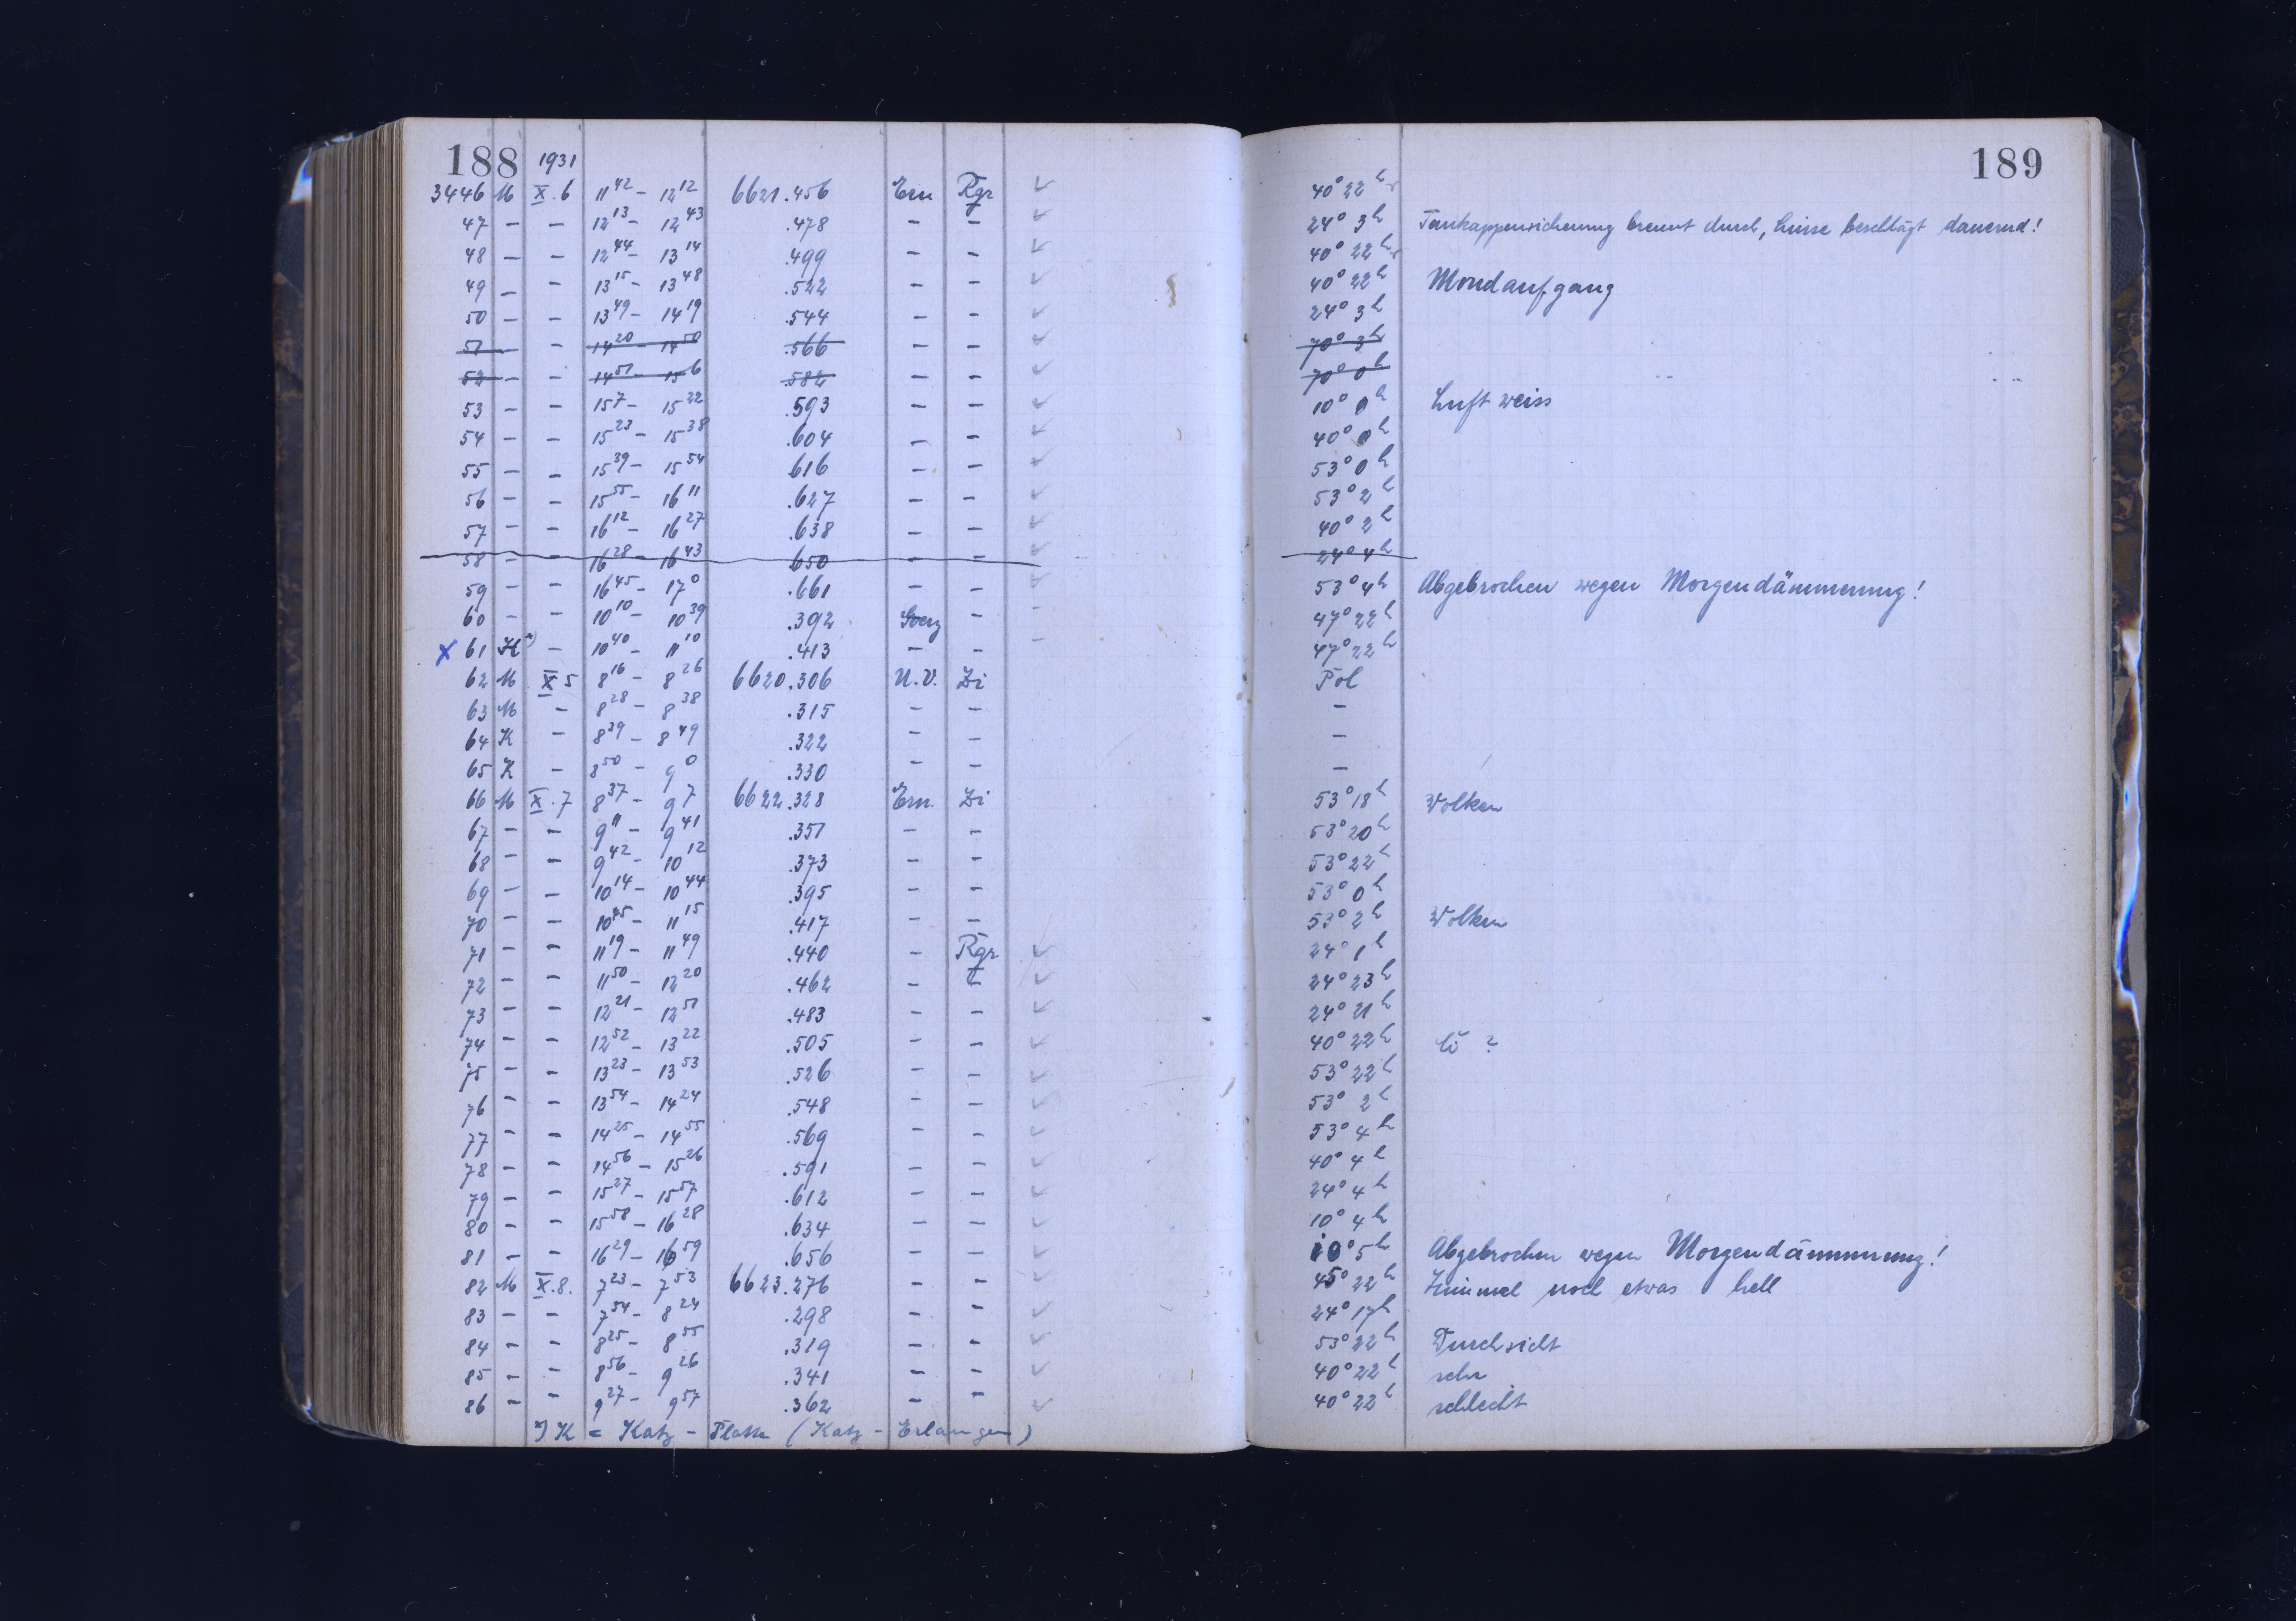 188 1931 189
3446 M X.6 11 42 - 12 12 6621.456 Ern Rgr 40° 22 h
47 - - 12 13 - 12 43 .478 - - 24° 3 h Taukappensicherung brennt durch, Linse beschlägt dauernd!
48 - - 12 44 - 13 14 .499 - - 40° 22 h
49 - - 13 15 - 13 48 .522 - - 40° 22 h Mondaufgang
50 - - 13 49 - 14 19 .544 - - 24° 3 h
51 - - 14 20 - 14 50 .566 - - 70° 3 h
52 - - 14 51 - 15 6 .582 - - 70° 0 h
53 - - 15 7 - 15 22 .593 - - 10° 0 h Luft weiss
54 - - 15 23 - 15 38 .604 - - 40° 0 h
55 - - 15 39 - 15 54 616 - - 53° 0 h
56 - - 15 55 - 16 11 .627 - - 53° 2 h
57 - - 16 12 - 16 27 .638 - - 40° 2 h
58 - - 16 28 - 16 43 650 - - 24° 4 h
59 - - 16 45 - 17 0 .661 - - 53° 4 h Abgebrochen wegen Morgendämmerung!
60 - - 10 10 - 10 39 .392 Goerz - 47° 22 h
x 61 K*) - 10 40 - 11 10 .413 - - 47° 22 h
62 M X 5 8 16 - 8 26 6620.306 U.V. Zi Pol
63 M - 8 28 - 8 38 .315 - - -
64 K - 8 39 - 8 49 .322 - - -
65 K - 8 50 - 9 0 .330 - - -
66 M X.7 8 37 - 9 7 6622.328 Ern. Zi 53° 18 h Wolken
67 - - 9 11 - 9 41 .351 - - 53° 20 h
68 - - 9 42 - 10 12 .373 - - 53° 22 h
69 - - 10 14 - 10 44 .395 - - 53° 0 h
70 - - 10 45 - 11 15 .417 - - 53° 2 h Wolken
71 - - 11 19 - 11 49 .440 - Rgr 24° 1 h
72 - - 11 50 - 12 20 .462 - - 24° 23 h
73 - - 12 21 - 12 51 .483 - - 24° 21 h
74 - - 12 52 - 13 22 .505 - - 40° 22 h Ci ?
75 - - 13 23 - 13 53 .526 - - 53° 22 h
76 - - 13 54 - 14 24 .548 - - 53° 2 h
77 - - 14 25 - 14 55 .569 - - 53° 4 h
78 - - 14 56 - 15 26 .591 - - 40° 4 h
79 - - 15 27 - 15 57 .612 - - 24° 4 h
80 - - 15 58 - 16 28 .634 - - 10° 4 h
81 - - 16 29 - 16 59 .656 - - 10° 5 h Abgebrochen wegen Morgendämmerung!
82 M X.8. 7 23 - 7 53 6623.276 - - 45° 22 h Himmel noch etwas hell
83 - - 7 54 - 8 24 .298 - - 24° 17 h
84 - - 8 25 - 8 55 .319 - - 53° 22 h Durchsicht
85 - - 8 56 - 9 26 .341 - - 40° 22 h sehr
86 - - 9 27 - 9 57 .362 - - 40° 22 h schlecht
*) K = Katz - Platte (Katz - Erlangen)